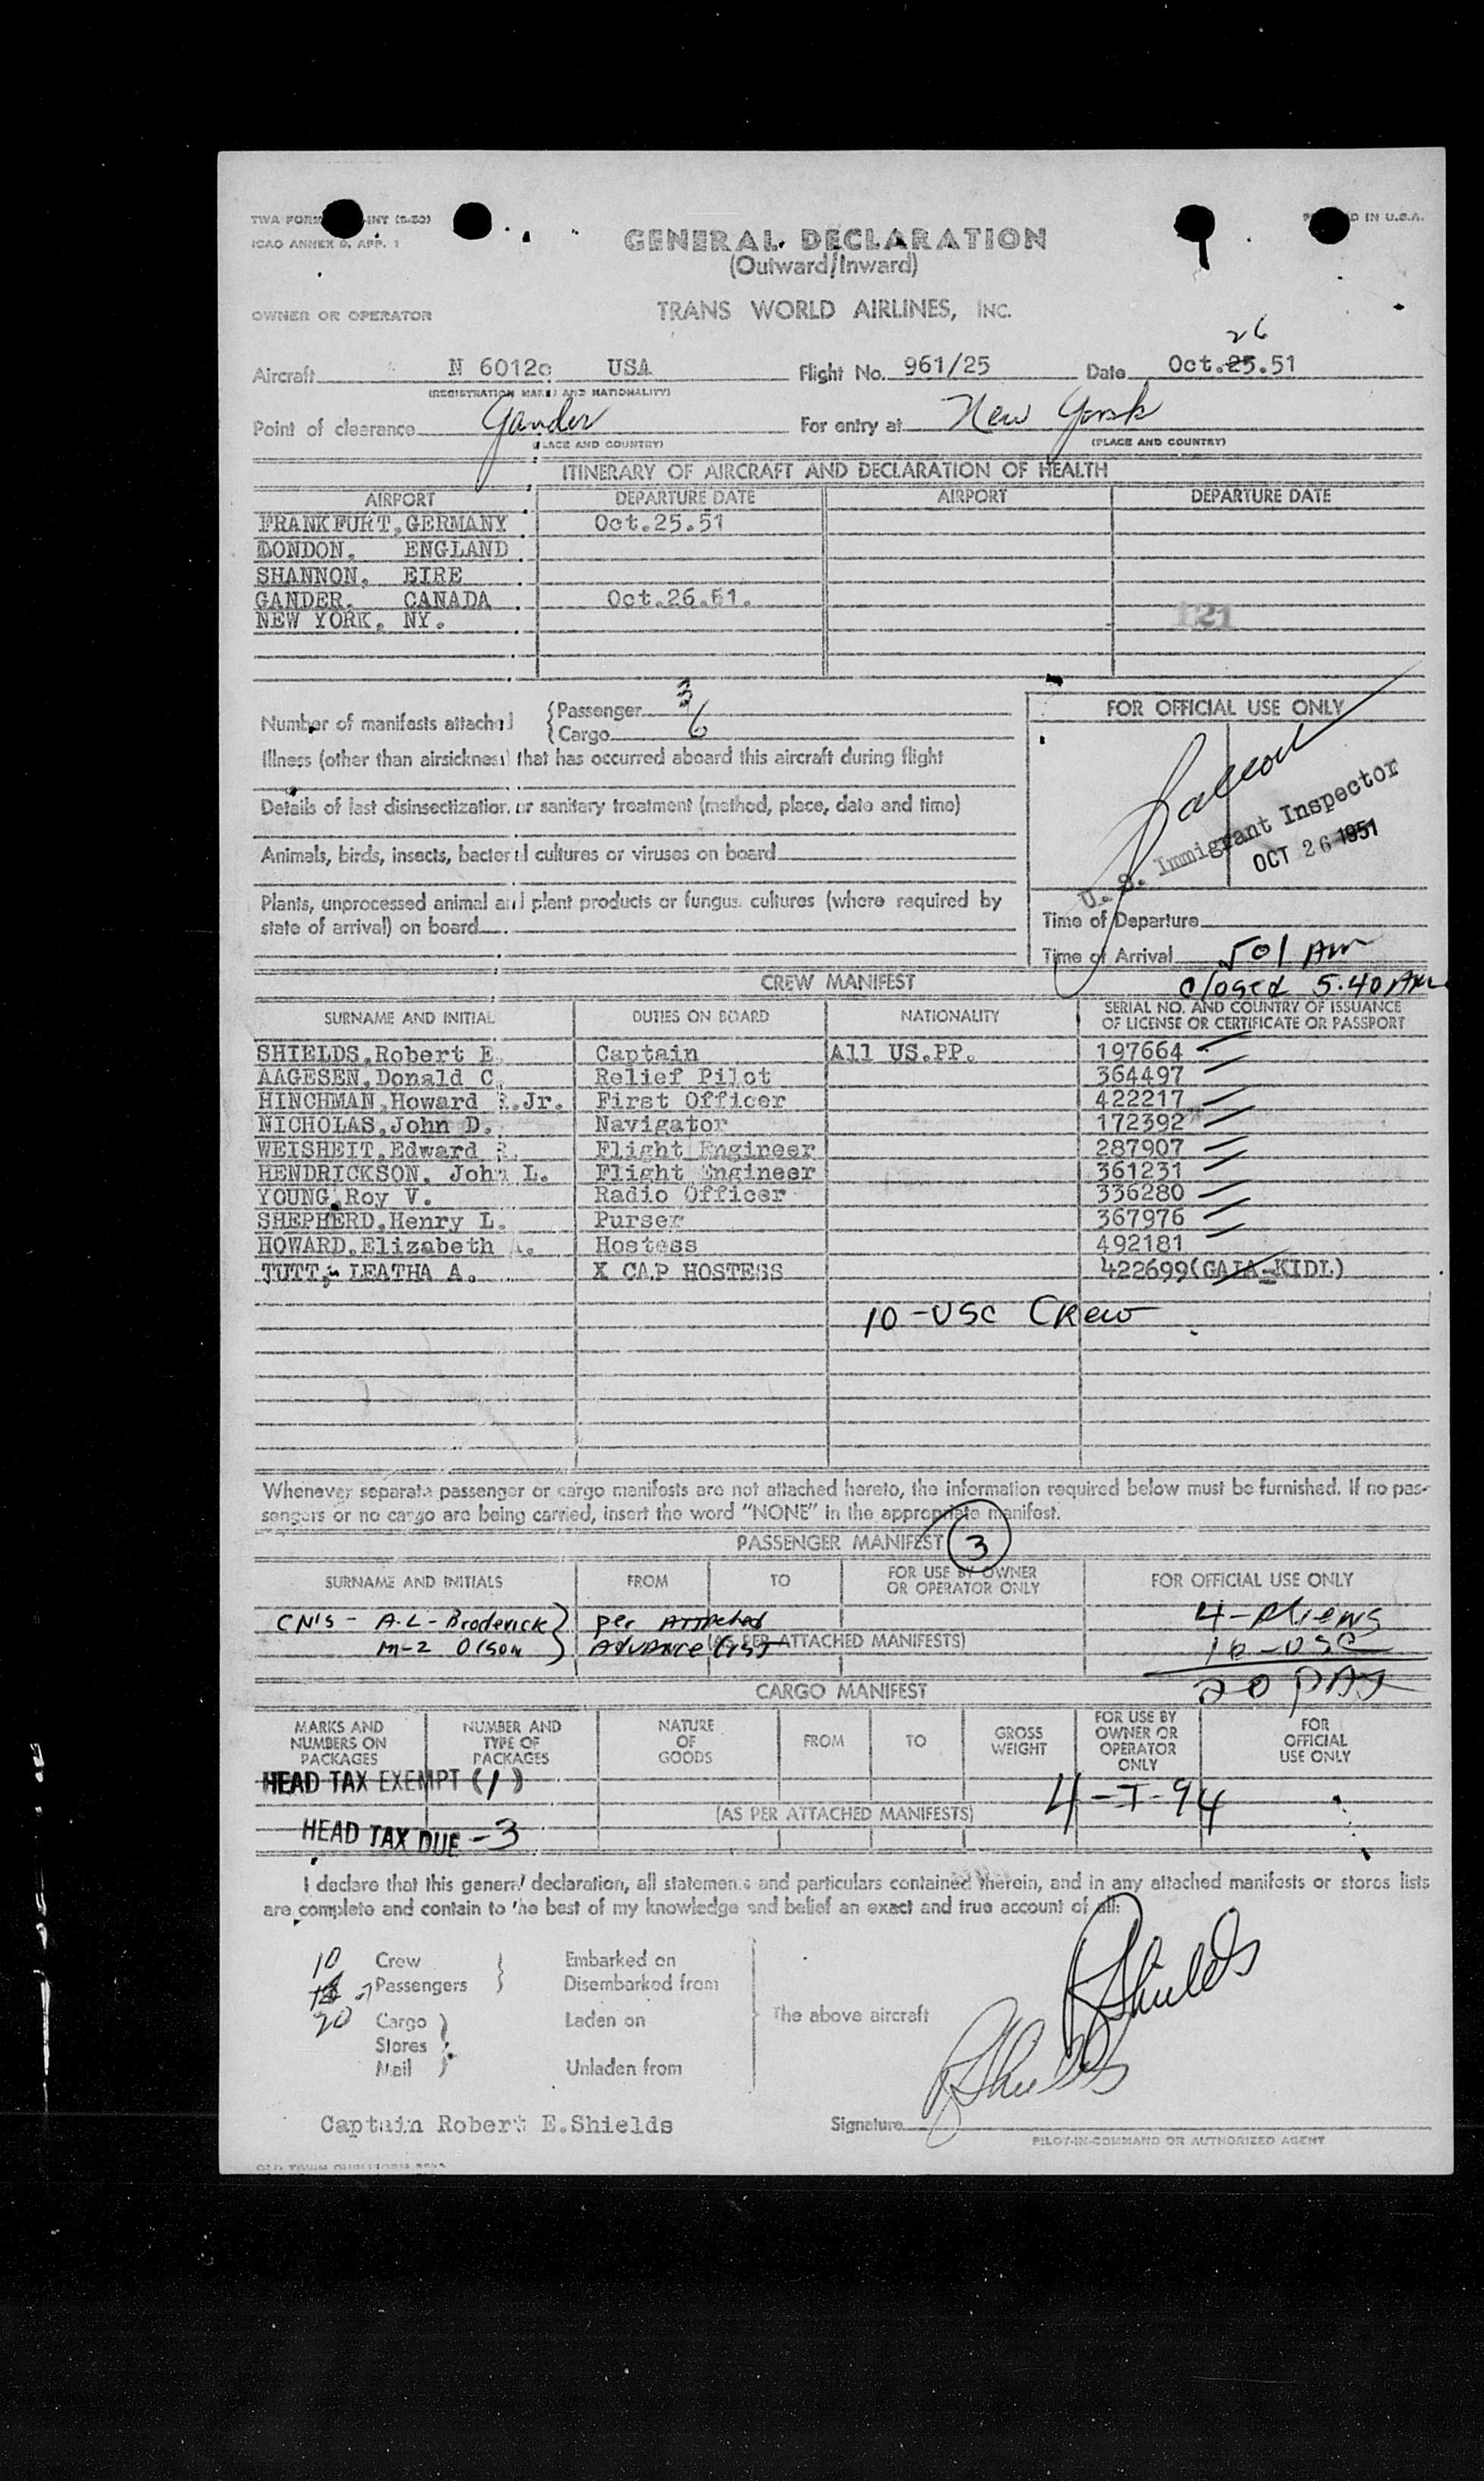 TWA FORM INT (5-50)
ICAO ANNEX 9, APP. 1
D IN U.S.A.
GENERAL DECLARATION
(Outward/Inward)
OWNER OR OPERATOR
TRANS WORLD AIRLINES, INC.
26
Aircraft N 6012c USA Flight No. 961/25 Date Oct.25.51
(REGISTRATION MARKS AND NATIONALITY)
Point of clearance Gander For entry at New York
(PLACE AND COUNTRY) (PLACE AND COUNTRY)
ITINERARY OF AIRCRAFT AND DECLARATION OF HEALTH
AIRPORT DEPARTURE DATE AIRPORT DEPARTURE DATE
FRANKFURT,GERMANY Oct.25.51
LONDON, ENGLAND
SHANNON, EIRE
GANDER. CANADA Oct.26.51.
NEW YORK, NY. 121
Number of manifests attached {Passenger 3
{Cargo 6
FOR OFFICIAL USE ONLY
Illness (other than airsickness) that has occurred aboard this aircraft during flight
Details of last disinsectization or sanitary treatment (method, place, date and time)
U. S. Immigrant Inspector
OCT 26 1951
Animals, birds, insects, bacterial cultures or viruses on board
Plants, unprocessed animal and plant products or fungus cultures (where required by
state of arrival) on board
Time of Departure
Time of Arrival 501 AM
closed 5.40 AM
CREW MANIFEST
SURNAME AND INITIAL DUTIES ON BOARD NATIONALITY SERIAL NO. AND COUNTRY OF ISSUANCE
OF LICENSE OR CERTIFICATE OR PASSPORT
SHIELDS,Robert E. Captain All US.PP. 197664
AAGESEN,Donald C. Relief Pilot 364497
HINCHMAN,Howard R.Jr. First Officer 422217
NICHOLAS,John D. Navigator 172392
WEISHEIT,Edward R. Flight Engineer 287907
HENDRICKSON, John L. Flight Engineer 361231
YOUNG,Roy V. Radio Officer 336280
SHEPHERD,Henry L. Purser 367976
HOWARD,Elizabeth A. Hostess 492181
TUTT, LEATHA A. X CAP HOSTESS 422699(GAIA-KIDL)
10-USC Crew
Whenever separate passenger or cargo manifests are not attached hereto, the information required below must be furnished. If no pas-
sengers or no cargo are being carried, insert the word "NONE" in the appropriate manifest.
PASSENGER MANIFEST 3
SURNAME AND INITIALS FROM TO FOR USE BY OWNER
OR OPERATOR ONLY FOR OFFICIAL USE ONLY
CN's - A-L-Broderick } per Attached 4-Aliens
M-Z Olson } Advance List (AS PER ATTACHED MANIFESTS) 16-USC
20 PAX
CARGO MANIFEST
MARKS AND
NUMBERS ON
PACKAGES NUMBER AND
TYPE OF
PACKAGES NATURE
OF
GOODS FROM TO GROSS
WEIGHT FOR USE BY
OWNER OR
OPERATOR
ONLY FOR
OFFICIAL
USE ONLY
HEAD TAX EXEMPT (1) 4-I-94
(AS PER ATTACHED MANIFESTS)
HEAD TAX DUE -3
I declare that this general declaration, all statements and particulars contained therein, and in any attached manifests or stores lists
are complete and contain to the best of my knowledge and belief an exact and true account of all:
10 Crew Embarked on
Passengers Disembarked from
20 Cargo Laden on The above aircraft
Stores
Mail Unladen from
RShields
RShields
Captain Robert E.Shields Signature
PILOT-IN-COMMAND OR AUTHORIZED AGENT